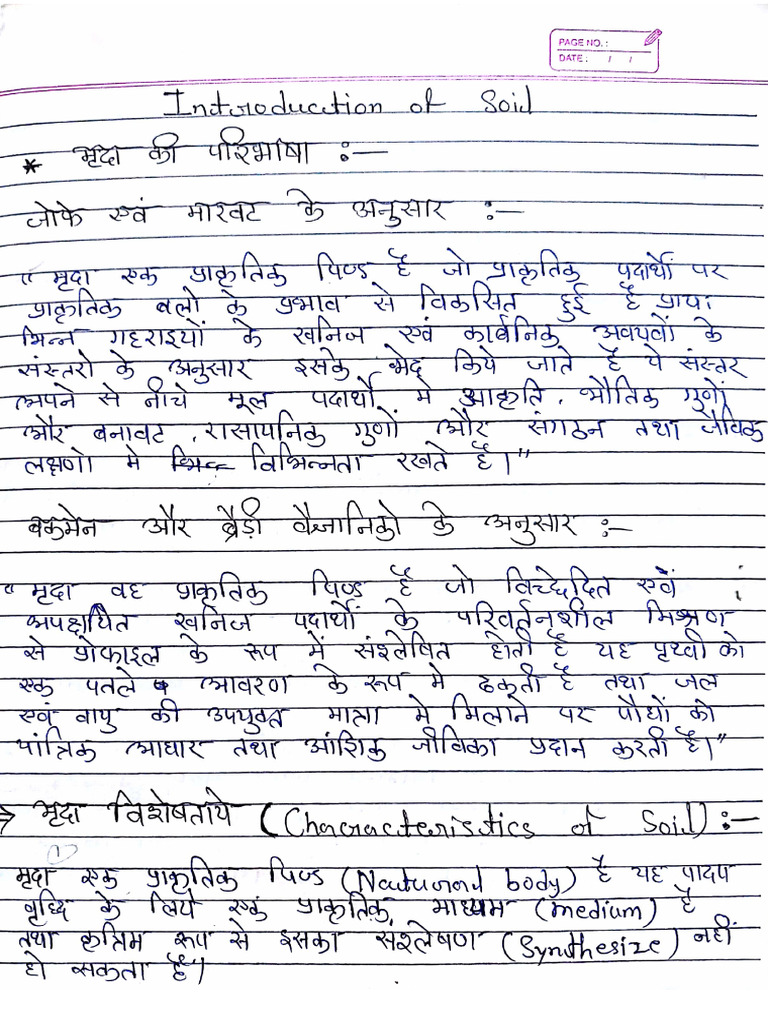 PAGE NO. :
DATE : / /
Introduction of Soil
* मृदा की परिभाषा :—
जोफे एवं मारवट के अनुसार :—
“ मृदा एक प्राकृतिक पिण्ड है जो प्राकृतिक पदार्थों पर
प्राकृतिक बलों के प्रभाव से विकसित हुई है प्रायः
भिन्न गहराइयों के खनिज एवं कार्बनिक अवयवों के
संस्तरो के अनुसार इसके भेद किये जाते है ये संस्तर
अपने से नीचे मूल पदार्थो मे आकृति, भौतिक गुणों
और बनावट, रासायनिक गुणों और संगठन तथा जैविक
लक्षणो मे विभिन्नता रखते है।”
बकमेन और ब्रैडी वैज्ञानिको के अनुसार :—
“ मृदा वह प्राकृतिक पिण्ड है जो विच्छेदित एवं
अपक्षयित खनिज पदार्थो के परिवर्तनशील मिश्रण
से प्रोफाइल के रूप में संश्लेषित होती है यह पृथ्वी को
एक पतले आवरण के रूप मे ढकती है तथा जल
एवं वायु की उपयुक्त मात्रा मे मिलाने पर पौधों को
यांत्रिक आधार तथा आंशिक जीविका प्रदान करती है।”
→ मृदा विशेषताये (Characteristics of Soil) :—
①
मृदा एक प्राकृतिक पिण्ड (Natural body) है यह पादप
वृध्दि के लिये एक प्राकृतिक माध्यम (medium) है
तथा कृत्रिम रूप से इसका संश्लेषण (Synthesize) नहीं
हो सकता है।